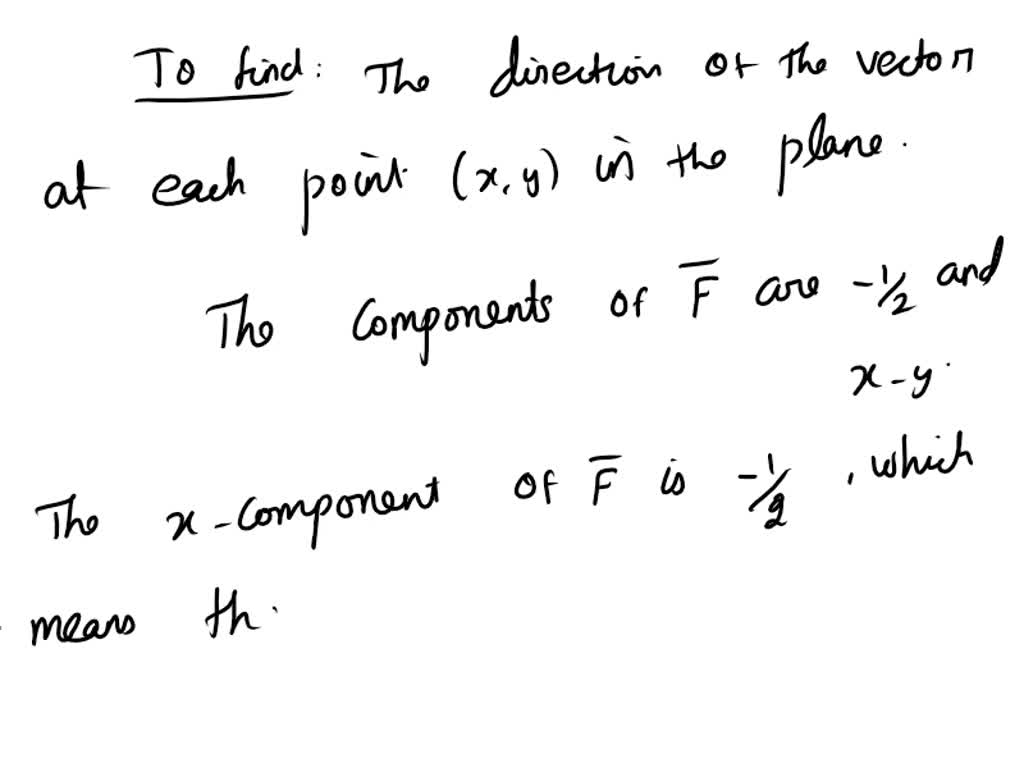 To find: The direction of the vector
at each point (x, y) in the plane.
The components of F̅ are -1/2 and
x-y.
The x-component of F̅ is -1/2, which
means th